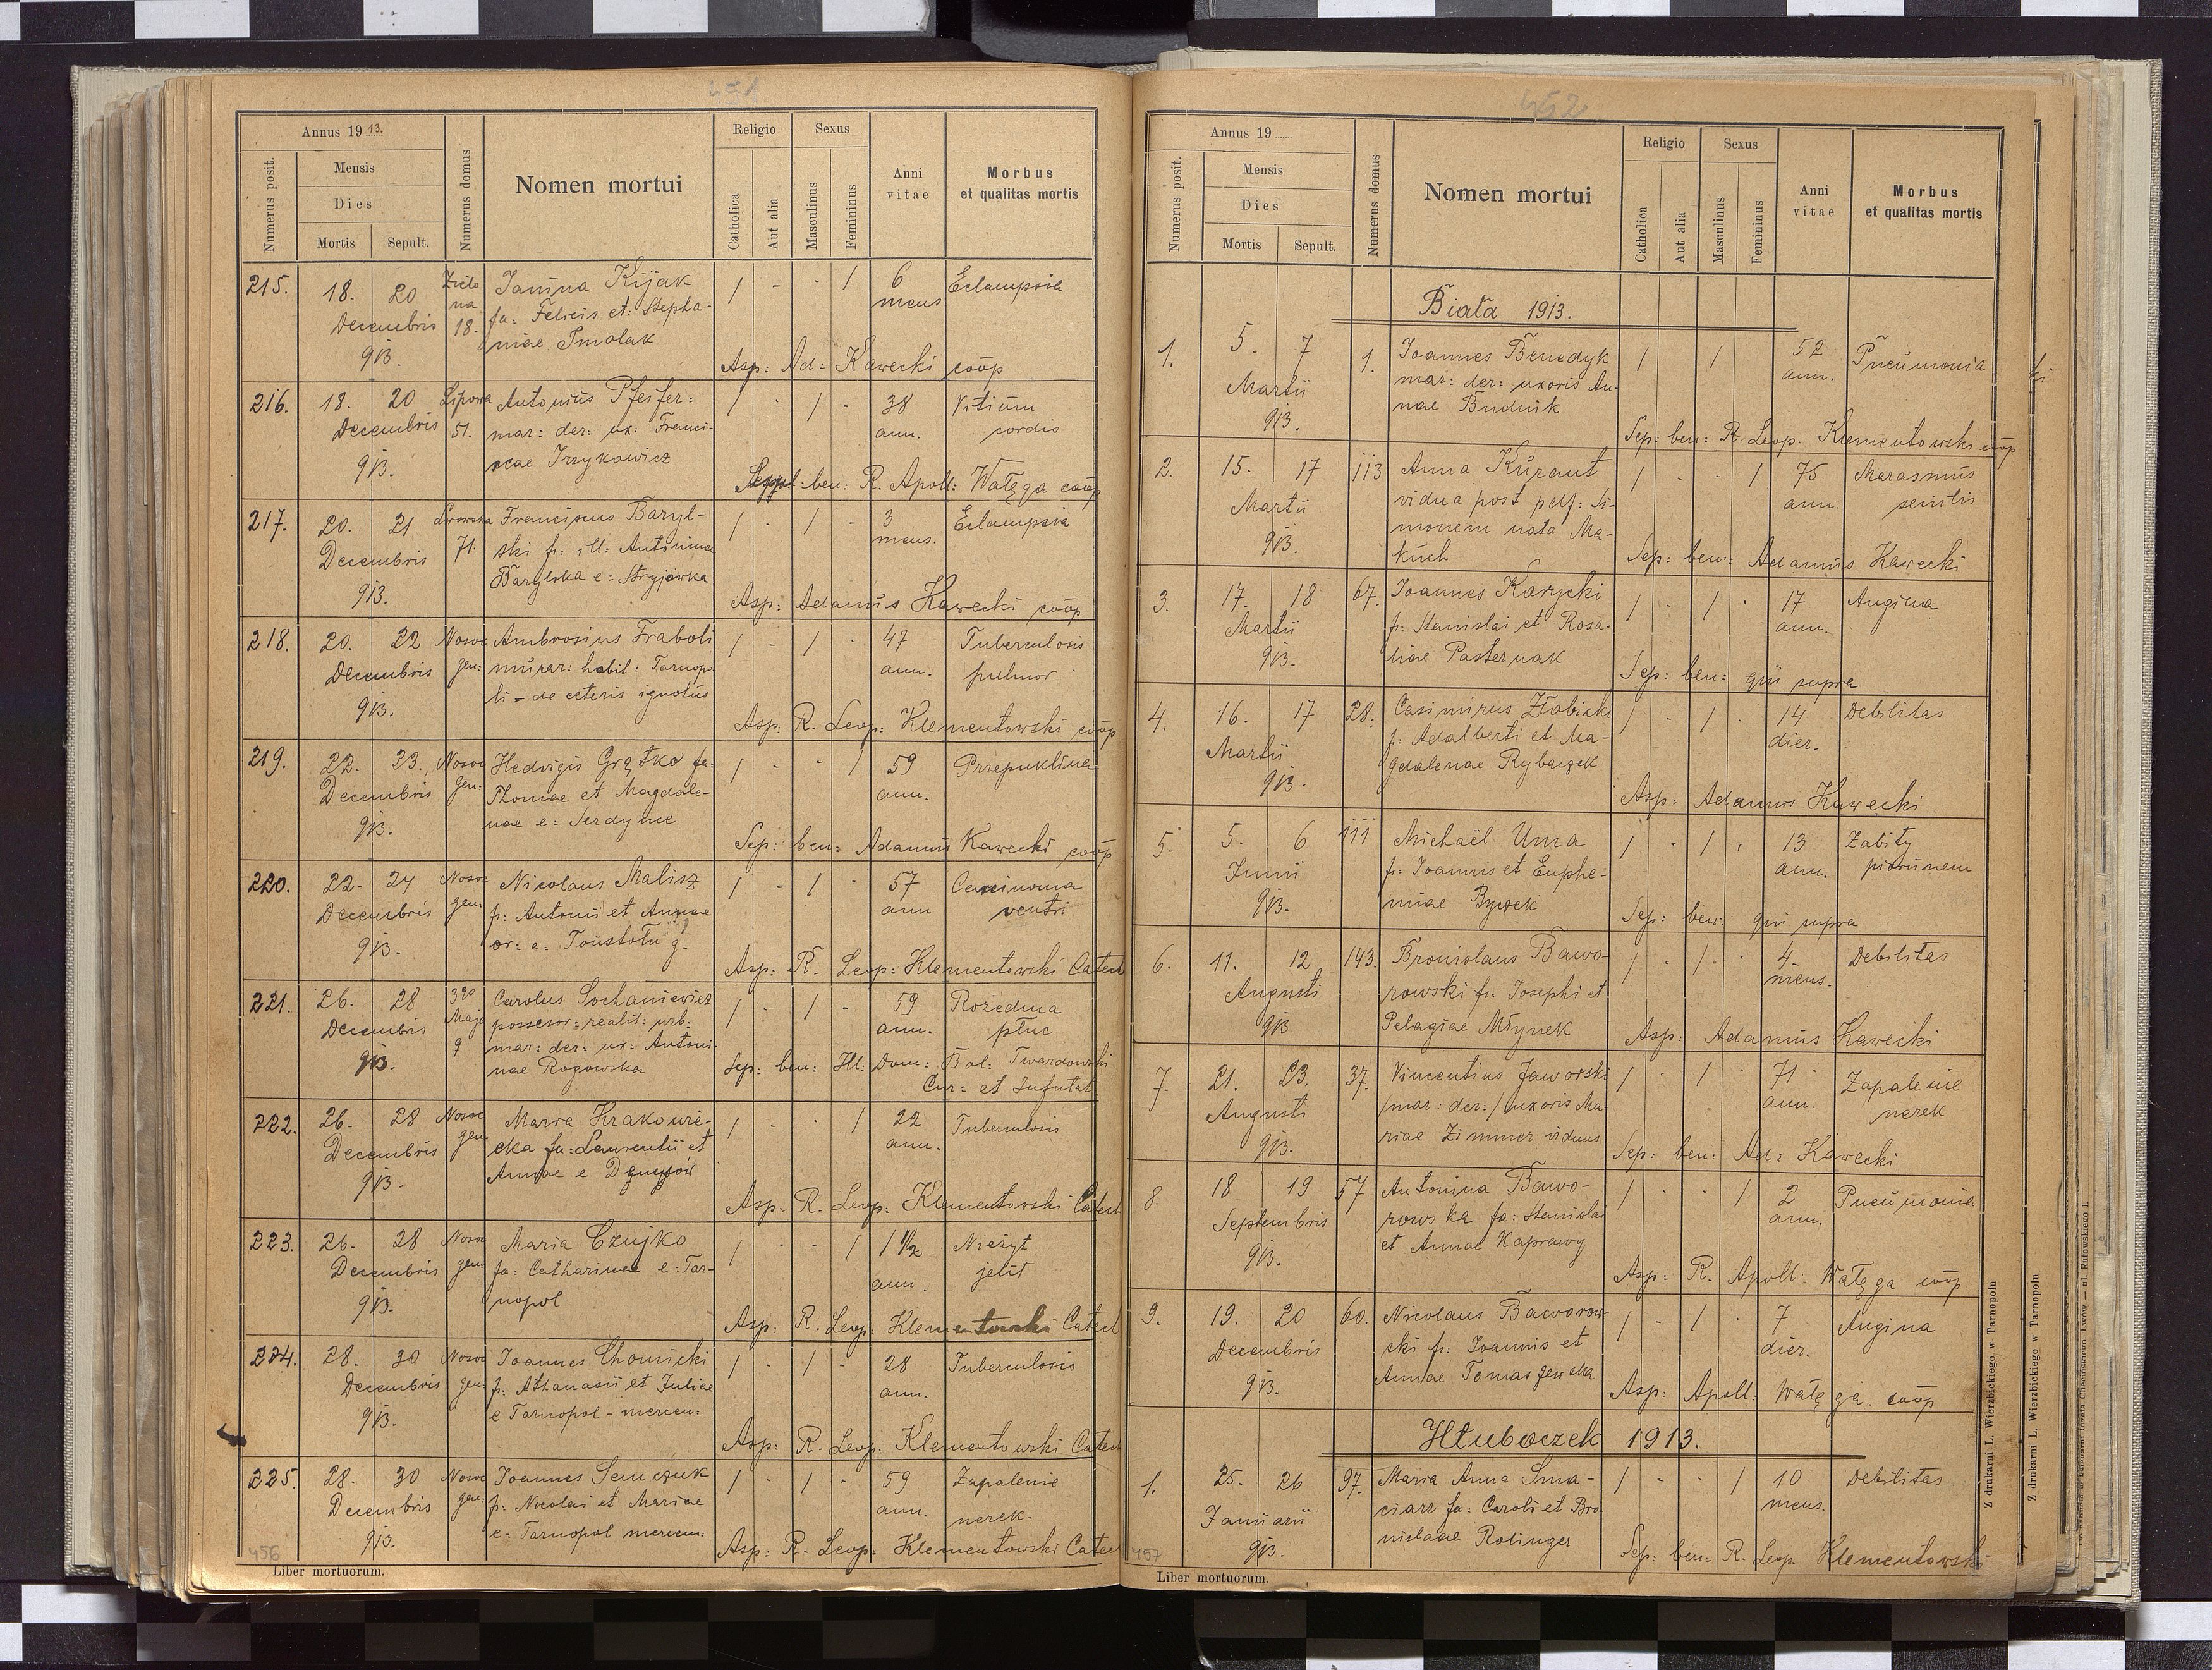 451
Annus 19 13.
Numerus posit.
Mensis
Dies
Mortis
Sepult.
Numerus domus
Nomen mortui
Religio
Catholica
Aut alia
Sexus
Masculinus
Femininus
Anni
vitae
Morbus
et qualitas mortis
215. 18. 20 Janina Kijak 1 - - 1 6 Eclampsia
Decembris 18. fa: Felicis et Stepha- mens
913. niae Smolak
Asp: Ad: Kawecki coop
216. 18. 20 Lipowa Antonius Pfeifer: 1 - 1 - 38 Vitium
Decembris 51. mar: der: ux: Franci- ann. cordis
913. scae Irzykowicz
Sepel: ben: R. Apoll: Wałęga coop
217. 20. 21 Lwowska Franciscus Baryl- 1 - 1 - 3 Eclampsia
Decembris 71. ski f: ill: Antoninae mens.
913. Barylska e: Stryjówka
Asp: Adamus Kawecki coop
218. 20. 22 Nosoc Ambrosius Fraboli 1 - 1 - 47 Tuberculosis
Decembris gen: murar: habit: Tarnopo- ann. pulmor
913. li - de ceteris ignotus
Asp. R. Leop: Klementowski coop
219. 22. 23. Nosoc Hedvigis Grątko fa: 1 - - 1 59 Przepuklina
Decembris gen: Thomae et Magdale- ann.
913. nae e: Serdynce
Sep: ben: Adamus Kawecki coop
220. 22. 24 Nosoc Nicolaus Malisz 1 - 1 - 57 Carcinoma
Decembris gen: f: Antonii et Annae ann ventri
913. or: e: Toustoług.
Asp: R. Leop: Klementowski Catech
221. 26. 28 3go Carolus Sochaniewicz 1 - 1 - 59 Rozedma
Decembris Maja possesor: realit: urb: ann. płuc
913. 9 mar: der: ux: Antoni-
nae Rogowska
Sep: ben: Ill: Dom: Bol: Twardowski
Cur: et Infutat
222. 26. 28 Nosoc Maria Krakowie- 1 - - 1 22 Tuberculosis
Decembris gen. cka fa: Laurentii et ann.
913. Annae e Denysów
Asp: R. Leop: Klementowski Catech
223. 26. 28 Nosoc Maria Czujko 1 - - 1 1 1/2 Nieżyt
Decembris gen: fa: Catharinae e: Tar- ann jelit
913. nopol
Asp: R. Leop: Klementowski Catech
224. 28. 30 Nosoc Joannes Chomicki 1 - 1 - 28 Tuberculosis
Decembris gen f: Athanasii et Juliae ann.
913. e Tarnopol - mercen:
Asp: R. Leop: Klementowski Catech
225. 28. 30 Nosoc Joannes Semczuk 1 - 1 - 59 Zapalenie
Decembris gen: f: Nicolai et Mariae ann. nerek.
913. e: Tarnopol mercen:
Asp: R. Leop: Klementowski Catech
456
Liber mortuorum.
452
Annus 19
Numerus posit.
Mensis
Dies
Mortis
Sepult.
Numerus domus
Nomen mortui
Religio
Catholica
Aut alia
Sexus
Masculinus
Femininus
Anni
vitae
Morbus
et qualitas mortis
Biała 1913.
1. 5. 7 1. Joannes Benedyk 1 1 52 Pneumonia
Martii mar: der: uxoris An- ann.
913. nae Budnik
Sep: ben: R. Leop. Klementowski coop
2. 15. 17 113 Anna Kurant 1 - - 1 75 Marasmus
Martii vidua post pelf: Si- ann. senilis
913. monem nata Ma-
kuch
Sep: ben: Adamus Kawecki
3. 17. 18 67. Joannes Karycki 1 - 1 - 17 Angina
Martii f: Stanislai et Rosa- ann.
913. liae Pasternak
Sep: ben: qui supra
4. 16. 17 28. Casimirus Żłobicki 1 - 1 - 14 Debilitas
Martii f: Adalberti et Ma- dier.
913. gdalenae Rybaczek
Asp: Adamus Kawecki
5. 5. 6 111 Michaël Uma 1 - 1 - 13 Zabity
Junii f: Joannis et Euphe- ann. piorunem
913. miae Byczek
Sep: ben: qui supra
6. 11. 12 143. Bronislaus Bawo- 1 - 1 - 4. Debilitas
Augusti rowski f: Josephi et mens.
913 Pelagiae Młynek
Asp: Adamus Kawecki
7. 21. 23. 37. Vincentius Jaworski 1 - 1 - 71 Zapalenie
Augusti /mar: der:/ uxoris Ma- ann. nerek
913. riae Zimmer viduus
Sep: ben: Ad: Kawecki
8. 18 19 57 Antonina Bawo- 1 - - 1 2 Pneumonia
Septembris rowska fa: Stanislai ann.
913. et Annae Kaprawy
Asp: R. Apoll: Wałęga coop
9. 19. 20 60. Nicolaus Baworow- 1 - 1 - 7 Angina
Decembris ski f: Joannis et dier.
913. Annae Tomaszewska
Asp: Apoll: Wałęga. coop
Hłuboczek 1913.
1. 25. 26 97. Maria Anna Sma- 1 - - 1 10 Debilitas
Januarii ciarz fa: Caroli et Bro- mens.
913. nislaae Rotinger
Sep: ben: R. Leop Klementowski
457
Liber mortuorum.
Z drukarni L. Wierzbickiego w Tarnopolu
Z drukarni L. Wierzbickiego w Tarnopolu